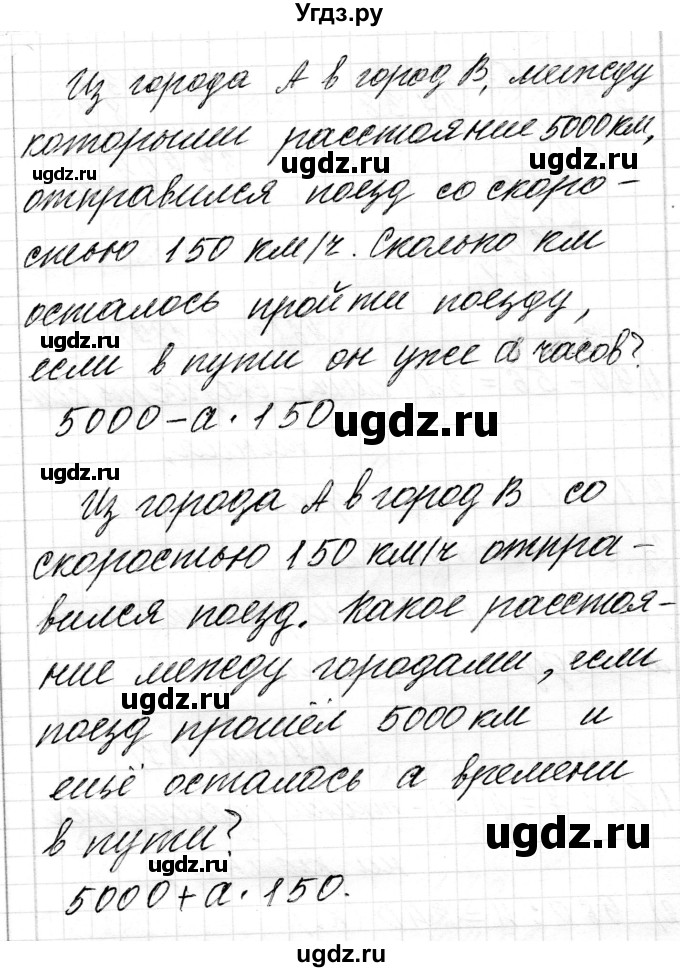 Угдз.ру
Из города А в город В, между
которыми расстояние 5000 км,
ugdz.ru ugdz.ru
отправился поезд со скоро-
стью 150 км/ч. Сколько км
осталось пройти поезду,
ugdz.ru
если в пути он уже а часов?
5000-а·150
ugdz.ru
ugdz.ru
Из города А в город В со
скоростью 150 км/ч отпра-
вился поезд. Какое расстоя-
ние между городами, если
ugdz.ru
поезд прошёл 5000 км и
ещё осталось а времени
в пути?
ugdz.ru
ugdz.ru
5000+а·150.
ugdz.ru